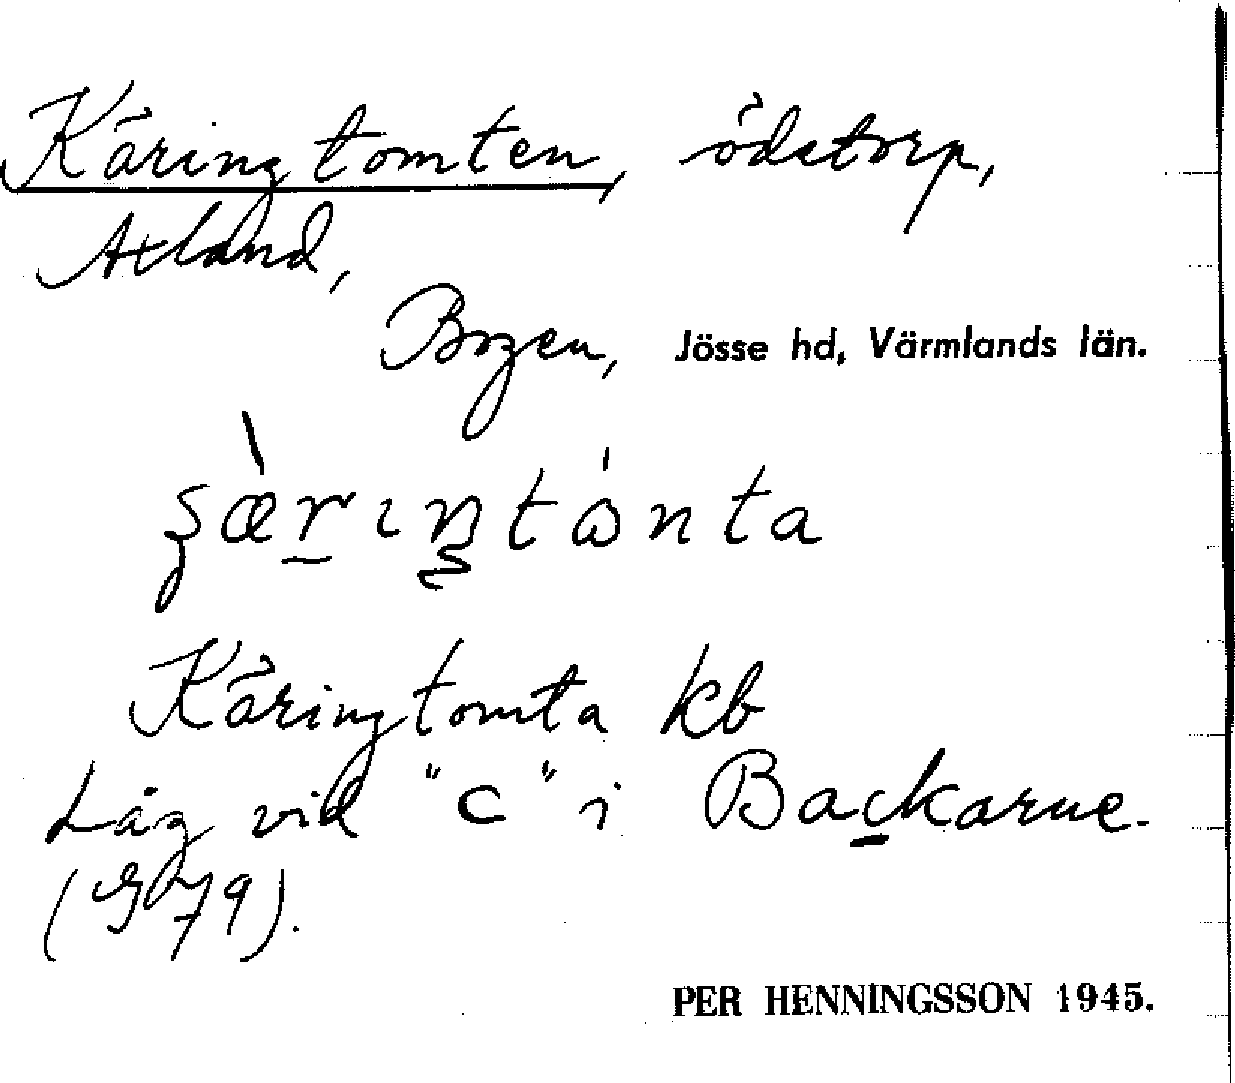 Käringtomten, ödetorp,
Axland,
Bogen, Jösse hd, Värmlands län.
Käringtomta kb
Låg vid "C" i Backarne.
(G79).
PER HENNINGSSON 1945.